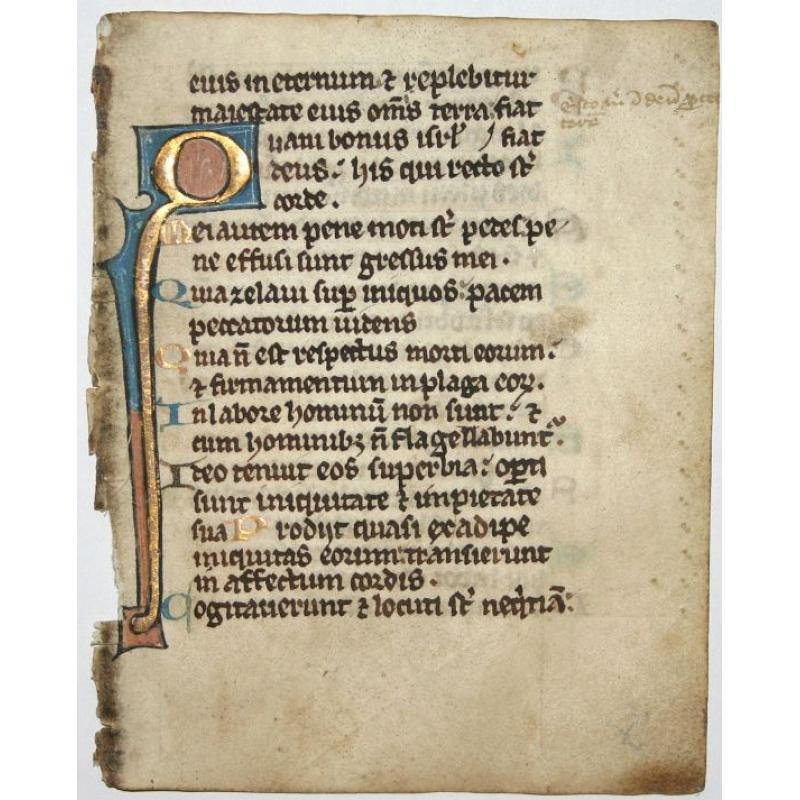 eius in eternum ⁊ replebitur
maiestate eius om̄s terra. fiat
Quam bonus isrł / fiat
deus: his qui recto st̄
corde.
Mei autem pene moti st̄ pedes. pe
ne effusi sunt gressus mei.
Quia zelaui sup iniquos: pacem
peccatorum uidens
Quia n̄ est respectus morti eorum:
⁊ firmamentum in plaga eoꝝ.
In labore hominū non sunt: ⁊
cum hominibꝫ n̄ flagellabunt᷑.
Ideo tenuit eos superbia: op̄ti
sunt iniquitate ⁊ impietate
sua Prodijt quasi ex adipe
iniquitas eorum: transierunt
in affectum cordis.
Cogitauerunt ⁊ locuti st̄ neq̇tiā: